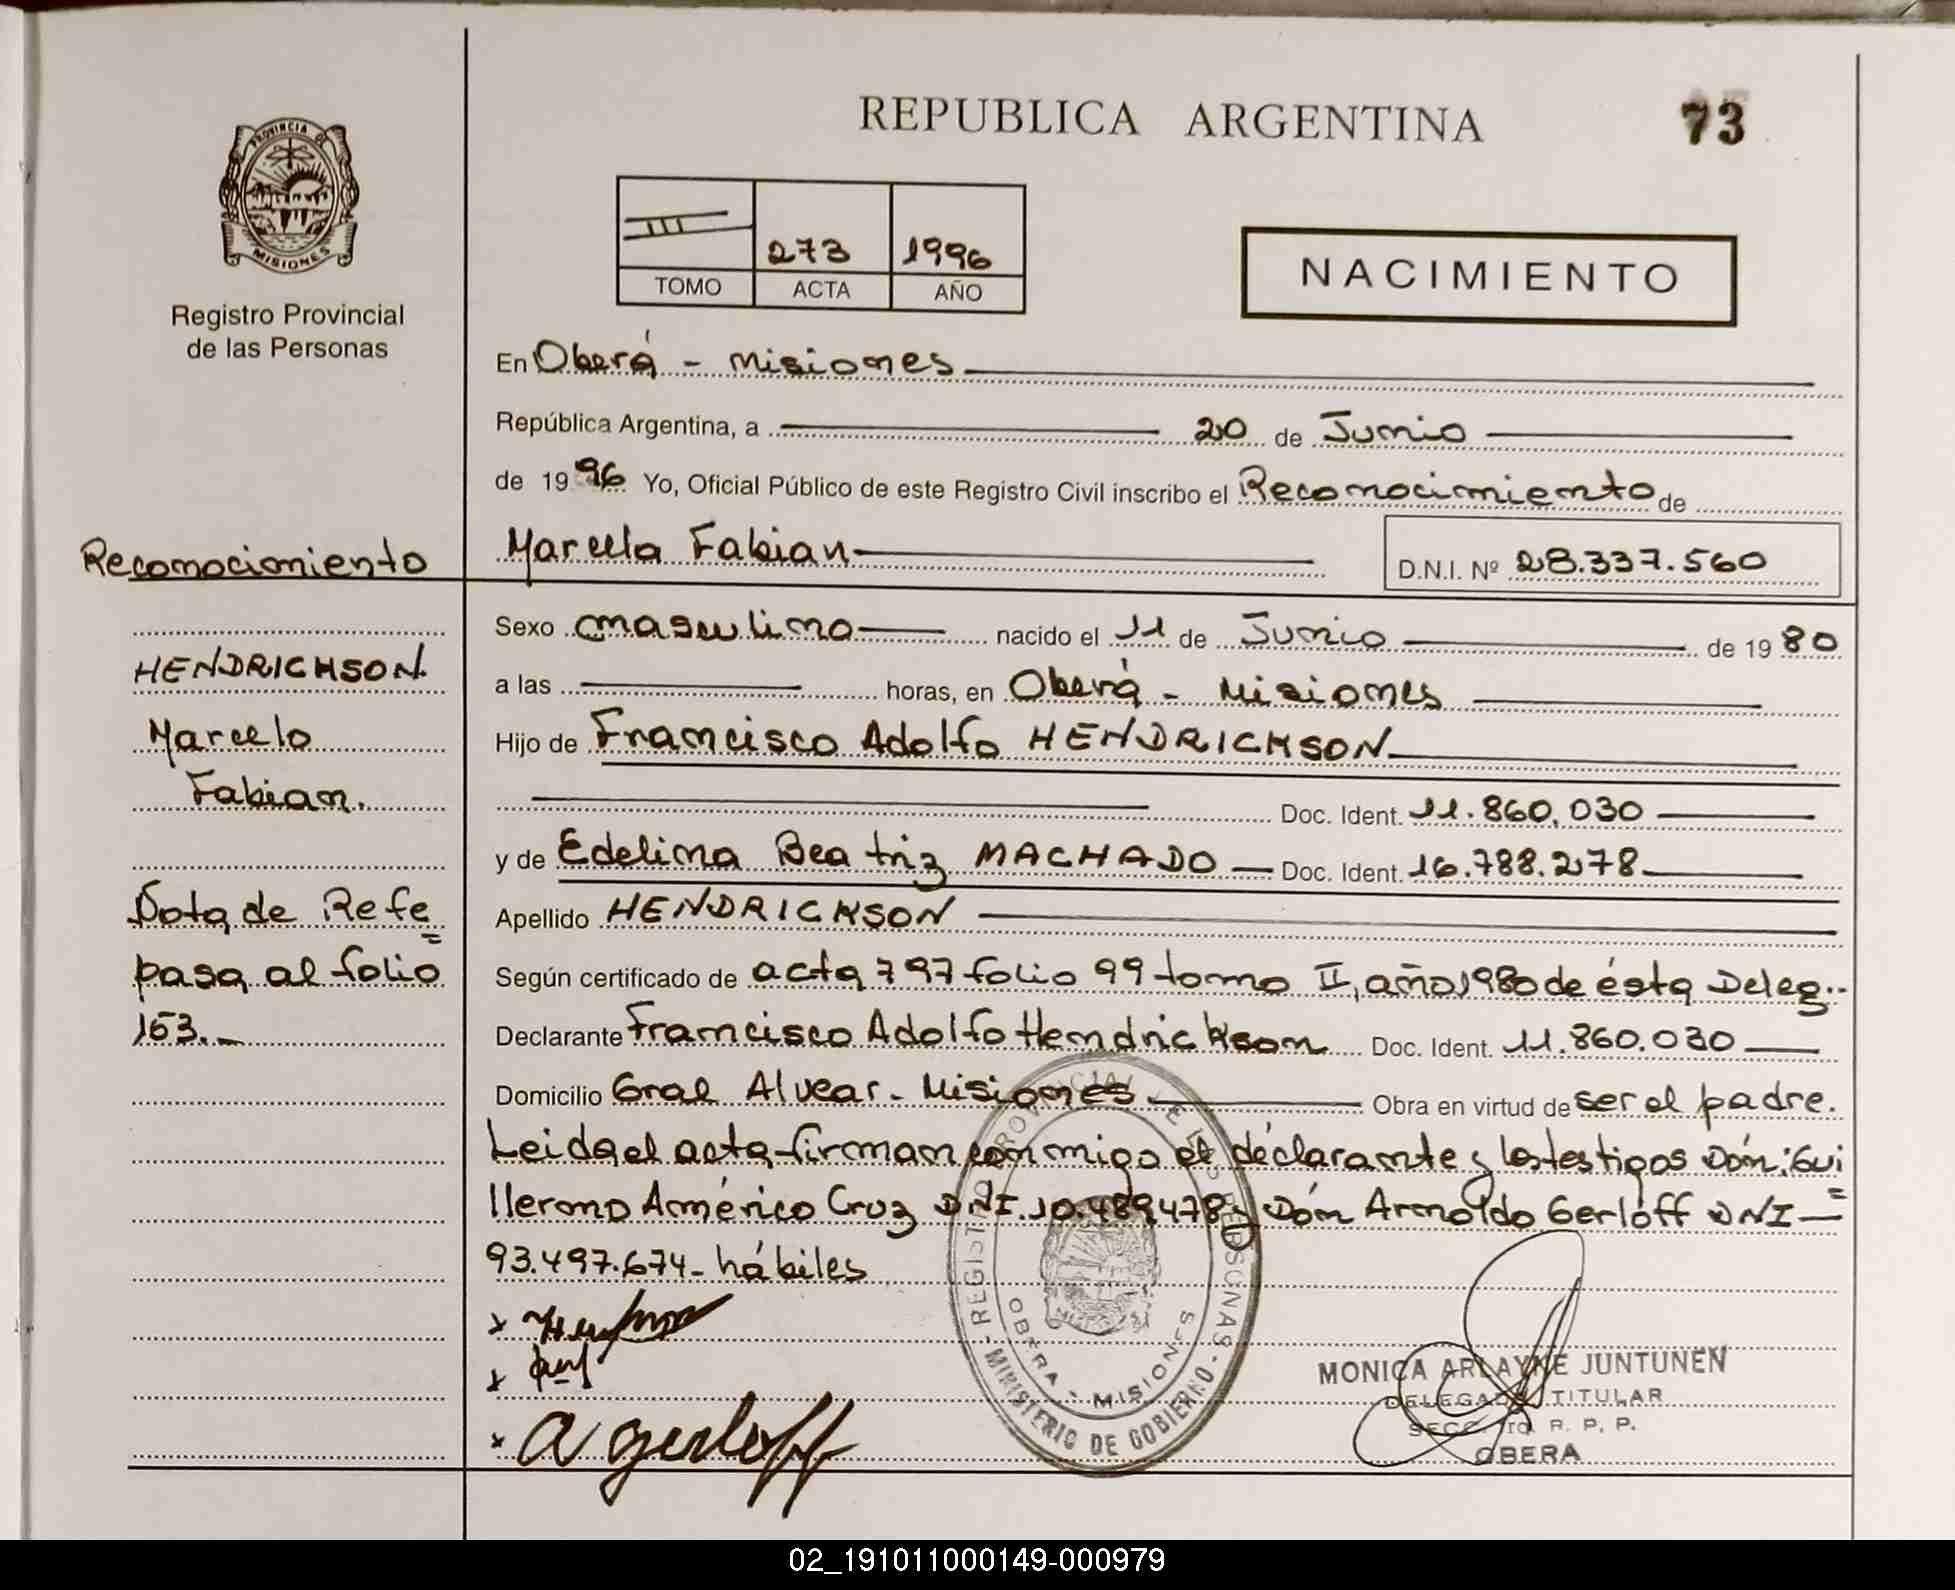 REPUBLICA ARGENTINA
73
PROVINCIA DE
MISIONES
Registro Provincial
de las Personas
III 273 1996
TOMO ACTA AÑO
NACIMIENTO
En Oberá - Misiones
República Argentina, a 20 de Junio
de 1996 Yo, Oficial Público de este Registro Civil inscribo el Reconocimiento de
Marcelo Fabian
D.N.I. Nº 28.337.560
Sexo masculino nacido el 11 de Junio de 1980
a las horas, en Oberá - Misiones
Hijo de Francisco Adolfo HENDRICKSON
Doc. Ident. 11.860.030
y de Edelina Beatriz MACHADO Doc. Ident. 16.788.278
Apellido HENDRICKSON
Según certificado de acta 797 folio 99 tomo II, año 1980 de ésta Deleg..
Declarante Francisco Adolfo Hendrickson Doc. Ident. 11.860.030
Domicilio Gral Alvear - Misiones Obra en virtud de ser el padre.
Leida el acta firman conmigo el declarante y los testigos Dón: Gui
llermo Américo Cruz DNI. 10.489.478 y Dón Arnoldo Gerloff DNI
93.497.674 - hábiles
a gerloff
Reconocimiento
HENDRICHSON.
Marcelo
Fabian.
Nota de Refe
pasa al folio
153.-
REGISTRO PROVINCIAL DE LAS PERSONAS
OBERA - MISIONES
MINISTERIO DE GOBIERNO
MONICA ARLAYNE JUNTUNEN
DELEGADA TITULAR
R. P. P.
OBERA
02_191011000149-000979